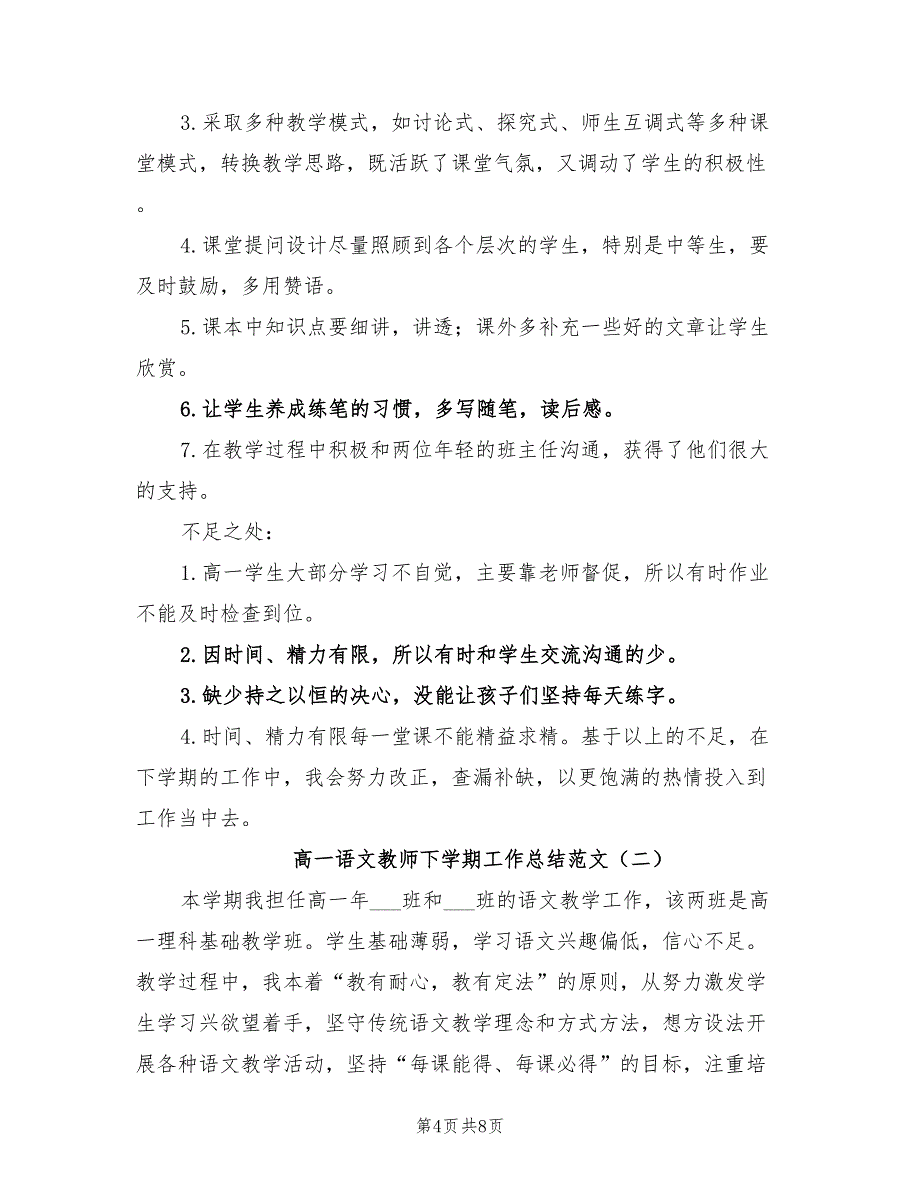 3.采取多种教学模式，如讨论式、探究式、师生互调式等多种课
堂模式，转换教学思路，既活跃了课堂气氛，又调动了学生的积极性
。
4.课堂提问设计尽量照顾到各个层次的学生，特别是中等生，要
及时鼓励，多用赞语。
5.课本中知识点要细讲，讲透；课外多补充一些好的文章让学生
欣赏。
6.让学生养成练笔的习惯，多写随笔，读后感。
7.在教学过程中积极和两位年轻的班主任沟通，获得了他们很大
的支持。
不足之处：
1.高一学生大部分学习不自觉，主要靠老师督促，所以有时作业
不能及时检查到位。
2.因时间、精力有限，所以有时和学生交流沟通的少。
3.缺少持之以恒的决心，没能让孩子们坚持每天练字。
4.时间、精力有限每一堂课不能精益求精。基于以上的不足，在
下学期的工作中，我会努力改正，查漏补缺，以更饱满的热情投入到
工作当中去。
高一语文教师下学期工作总结范文（二）
本学期我担任高一年___班和___班的语文教学工作，该两班是高
一理科基础教学班。学生基础薄弱，学习语文兴趣偏低，信心不足。
教学过程中，我本着“教有耐心，教有定法”的原则，从努力激发学
生学习兴欲望着手，坚守传统语文教学理念和方式方法，想方设法开
展各种语文教学活动，坚持“每课能得、每课必得”的目标，注重培
第4页共8页